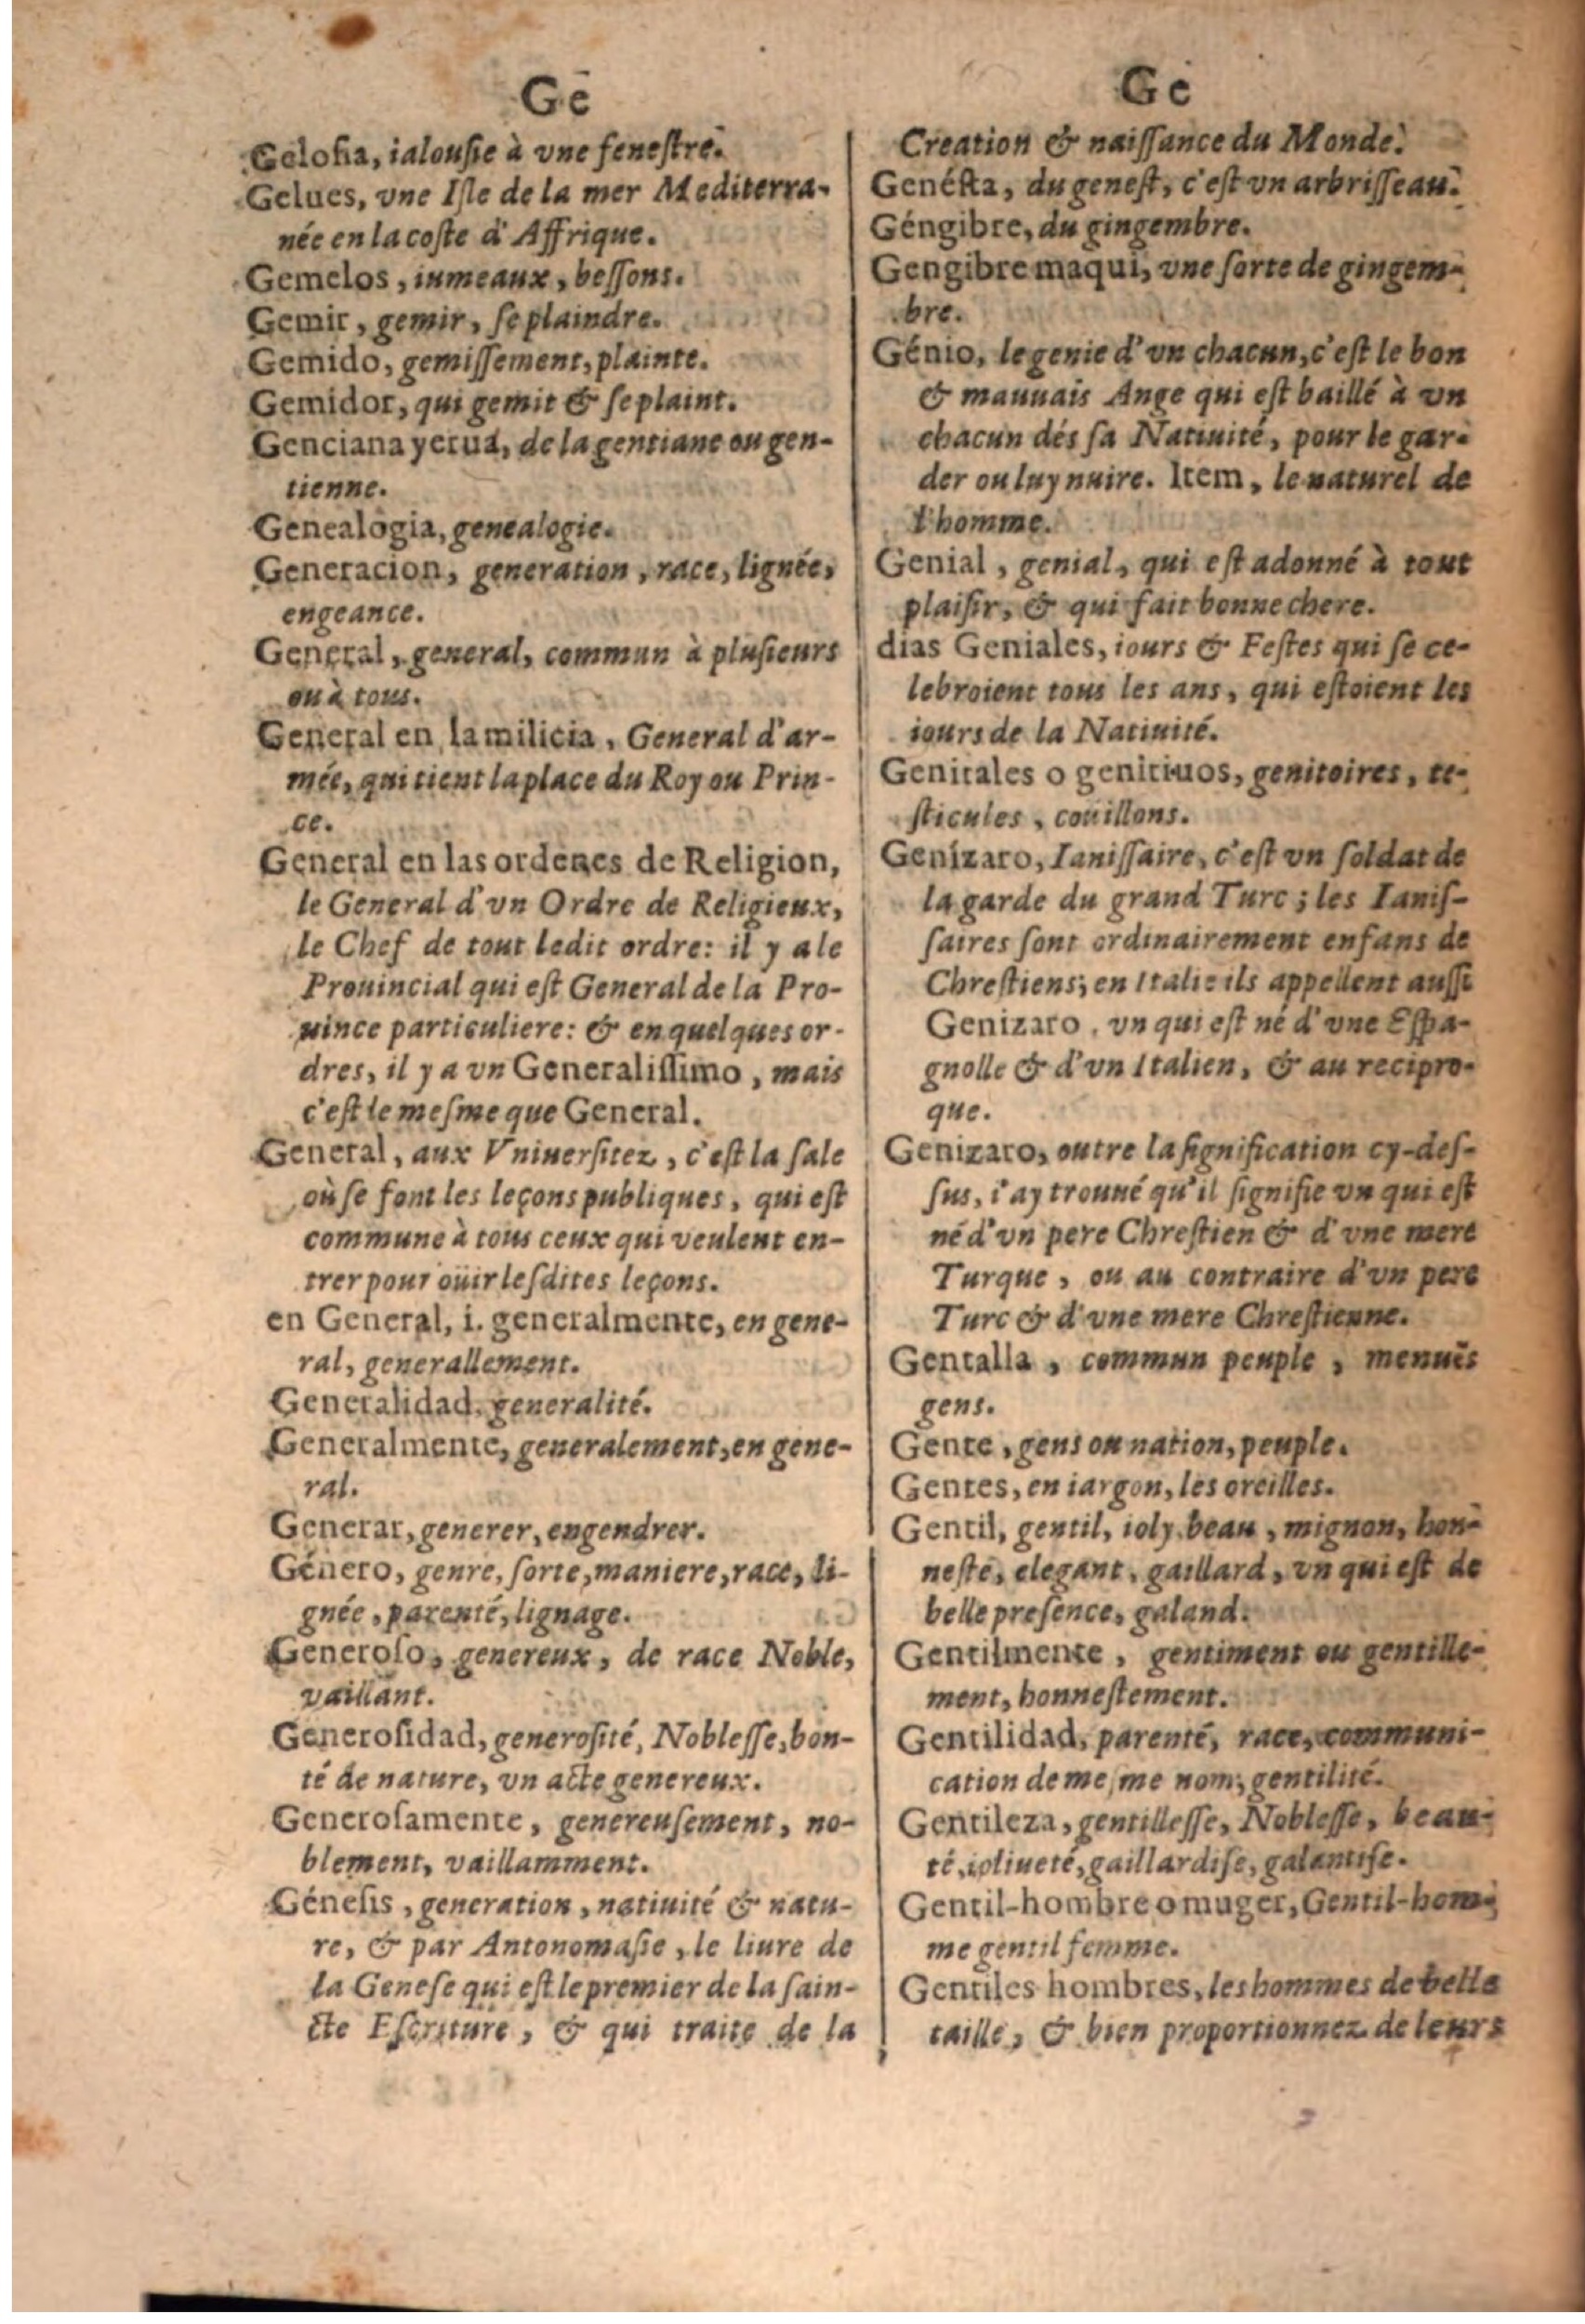 Ge
Gelosia, ialousie à vne fenestre.
Gelues, vne Isle de la mer Mediterra-
née en la coste d'Affrique.
Gemelos, iumeaux, bessons.
Gemir, gemir, se plaindre.
Gemido, gemissement, plainte.
Gemidor, qui gemit & se plaint.
Genciana yerua, de la gentiane ou gen-
tienne.
Genealogia, genealogie.
Generacion, generation, race, lignée,
engeance.
General, general, commun à plusieurs
ou à tous.
General en la milicia, General d'ar-
mée, qui tient la place du Roy ou Prin-
ce.
General en las ordenes de Religion,
le General d'vn Ordre de Religieux,
le Chef de tout ledit ordre: il y a le
Prouincial qui est General de la Pro-
uince particuliere: & en quelques or-
dres, il y a vn Generalissimo, mais
c'est le mesme que General.
General, aux Vniuersitez, c'est la sale
où se font les leçons publiques, qui est
commune à tous ceux qui veulent en-
trer pour oüir lesdites leçons.
en General, i. generalmente, en gene-
ral, generallement.
Generalidad, generalité.
Generalmente, generalement, en gene-
ral.
Generar, generer, engendrer.
Género, genre, sorte, maniere, race, li-
gnée, parenté, lignage.
Generoso, genereux, de race Noble,
vaillant.
Generosidad, generosité, Noblesse, bon-
té de nature, vn acte genereux.
Generosamente, genereusement, no-
blement, vaillamment.
Génesis, generation, natiuité & natu-
re, & par Antonomasie, le liure de
la Genese qui est le premier de la sain-
cte Escriture, & qui traite de la
Ge
Creation & naissance du Monde.
Genésta, du genest, c'est vn arbrisseau.
Géngibre, du gingembre.
Gengibre maqui, vne sorte de gingem-
bre.
Génio, le genie d'vn chacun, c'est le bon
& mauuais Ange qui est baillé à vn
chacun dés sa Natiuité, pour le gar-
der ou luy nuire. Item, le naturel de
l'homme.
Genial, genial, qui est adonné à tout
plaisir, & qui fait bonne chere.
dias Geniales, iours & Festes qui se ce-
lebroient tous les ans, qui estoient les
iours de la Natiuité.
Genitales o genitiuos, genitoires, te-
sticules, couillons.
Genízaro, Ianissaire, c'est vn soldat de
la garde du grand Turc; les Ianis-
saires sont ordinairement enfans de
Chrestiens; en Italie ils appellent aussi
Genizaro, vn qui est né d'vne Espa-
gnolle & d'vn Italien, & au recipro-
que.
Genizaro, outre la signification cy-des-
sus, i'ay trouué qu'il signifie vn qui est
né d'vn pere Chrestien & d'vne mere
Turque, ou au contraire d'vn pere
Turc & d'vne mere Chrestienne.
Gentalla, commun peuple, menuës
gens.
Gente, gens ou nation, peuple.
Gentes, en iargon, les oreilles.
Gentil, gentil, ioly, beau, mignon, hon-
neste, elegant, gaillard, vn qui est de
belle presence, galand.
Gentilmente, gentiment ou gentille-
ment, honnestement.
Gentilidad, parenté, race, communi-
cation de mesme nom, gentilité.
Gentileza, gentillesse, Noblesse, beau-
té, ioliueté, gaillardise, galantise.
Gentil-hombre o muger, Gentil-hom-
me gentil femme.
Gentiles hombres, les hommes de belle
taille, & bien proportionnez de leurs